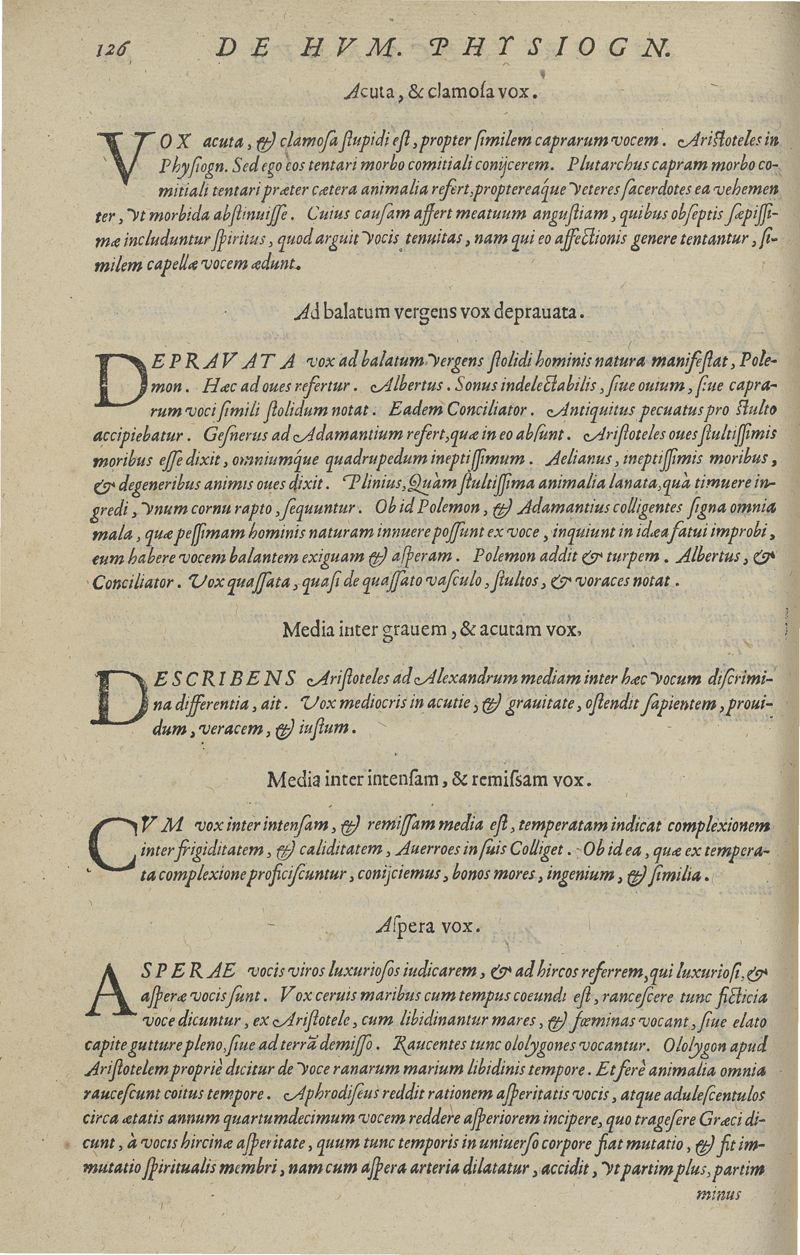 126 DE HVM. PHYSIOGN.
Acuta, & clamoſa vox.
VOX acuta, & clamoſa ſtupidi eſt, propter ſimilem caprarum vocem. Ariſtoteles in
Phyſiogn. Sed ego eos tentari morbo comitiali conijcerem. Plutarchus capram morbo co-
mitiali tentari præter cætera animalia refert, proptereaque veteres ſacerdotes ea vehemen
ter, vt morbida abſtinuiſſe. Cuius cauſam affert meatuum anguſtiam, quibus obſeptis ſæpiſſi-
mæ includuntur ſpiritus, quod arguit vocis tenuitas, nam qui eo affectionis genere tentantur, ſi-
milem capellæ vocem ædunt.
Ad balatum vergens vox deprauata.
DEPRAVATA vox ad balatum vergens ſtolidi hominis natura manifeſtat, Pole-
mon. Hæc ad oues refertur. Albertus. Sonus indelectabilis, ſiue ouium, ſiue capra-
rum voci ſimili ſtolidum notat. Eadem Conciliator. Antiquitus pecuatus pro ſtulto
accipiebatur. Geſnerus ad Adamantium refert, quæ in eo abſunt. Ariſtoteles oues ſtultiſſimis
moribus eſſe dixit, omniumq́ue quadrupedum ineptiſſimum. Aelianus, ineptiſſimis moribus,
& degeneribus animis oues dixit. Plinius, Quàm ſtultiſſima animalia lanata, quà timuere in-
gredi, vnum cornu rapto, ſequuntur. Ob id Polemon, & Adamantius colligentes ſigna omnia
mala, quæ peſſimam hominis naturam innuere poſſunt ex voce, inquiunt in idæa fatui improbi,
eum habere vocem balantem exiguam & aſperam. Polemon addit & turpem. Albertus, &
Conciliator. Vox quaſſata, quaſi de quaſſato vaſculo, ſtultos, & voraces notat.
Media inter grauem, & acutam vox,
DESCRIBENS Ariſtoteles ad Alexandrum mediam inter hæc vocum diſcrimi-
na differentia, ait. Vox mediocris in acutie, & grauitate, oſtendit ſapientem, proui-
dum, veracem, & iuſtum.
Media inter intenſam, & remiſsam vox.
CVM vox inter intenſam, & remiſſam media eſt, temperatam indicat complexionem
inter frigiditatem, & caliditatem, Auerroes in ſuis Colliget. Ob id ea, quæ ex tempera-
ta complexione proficiſcuntur, conijciemus, bonos mores, ingenium, & ſimilia.
Aſpera vox.
ASPERAE vocis viros luxurioſos iudicarem, & ad hircos referrem, qui luxurioſi, &
aſperæ vocis ſunt. Vox ceruis maribus cum tempus coeundi eſt, ranceſcere tunc ficticia
voce dicuntur, ex Ariſtotele, cum libidinantur mares, & fœminas vocant, ſiue elato
capite gutture pleno, ſiue ad terrā demiſſo. Raucentes tunc ololygones vocantur. Ololygon apud
Ariſtotelem propriè dicitur de voce ranarum marium libidinis tempore. Et ferè animalia omnia
rauceſcunt coitus tempore. Aphrodiſeus reddit rationem aſperitatis vocis, atque aduleſcentulos
circa ætatis annum quartumdecimum vocem reddere aſperiorem incipere, quo trageſere Græci di-
cunt, à vocis hircinæ aſperitate, quum tunc temporis in uniuerſo corpore fiat mutatio, & fit im-
mutatio ſpiritualis membri, nam cum aſpera arteria dilatatur, accidit, vt partim plus, partim
minus